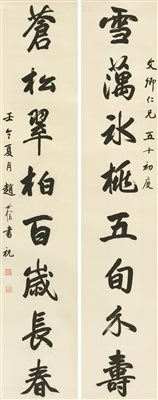 文卿仁兄 五十初度
雪藕氷桃五旬介壽
蒼松翠柏百歲長春
壬午夏月 趙書祝